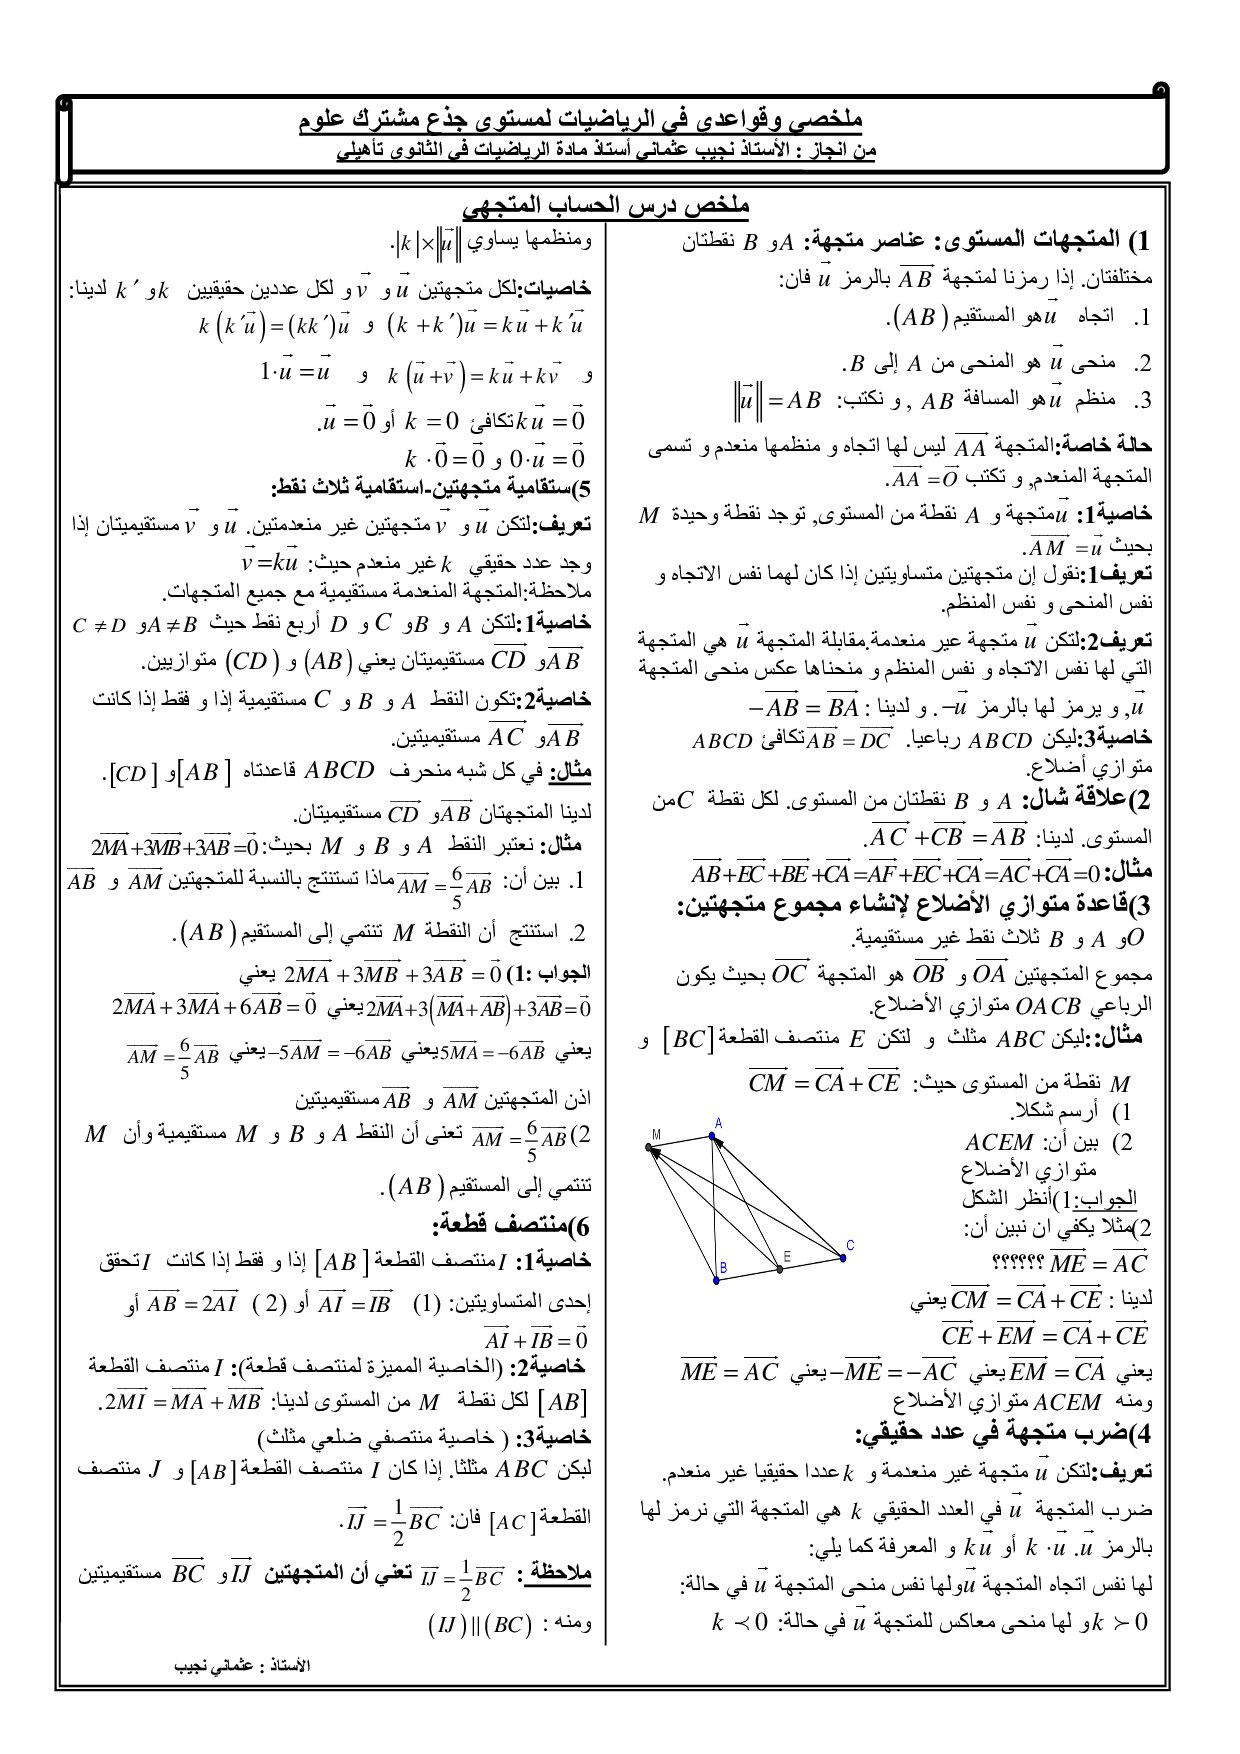 ملخصي وقواعدي في الرياضيات لمستوى جذع مشترك علوم
من انجاز : الأستاذ نجيب عثماني أستاذ مادة الرياضيات في الثانوي تأهيلي
ملخص درس الحساب المتجهي
1) المتجهات المستوى: عناصر متجهة: A و B نقطتان
مختلفتان. إذا رمزنا لمتجهة $\overrightarrow{AB}$ بالرمز $\vec{u}$ فان:
1. اتجاه $\vec{u}$ هو المستقيم (AB).
2. منحى $\vec{u}$ هو المنحى من A إلى B.
3. منظم $\vec{u}$ هو المسافة AB , و نكتب: $\|\vec{u}\| = AB$
حالة خاصة:المتجهة $\overrightarrow{AA}$ ليس لها اتجاه و منظمها منعدم و تسمى
المتجهة المنعدم, و تكتب $\overrightarrow{AA} = \vec{O}$.
خاصية1: $\vec{u}$ متجهة و A نقطة من المستوى, توجد نقطة وحيدة M
بحيث $\overrightarrow{AM} = \vec{u}$.
تعريف1:نقول إن متجهتين متساويتين إذا كان لهما نفس الاتجاه و
نفس المنحى و نفس المنظم.
تعريف2:لتكن $\vec{u}$ متجهة عير منعدمة.مقابلة المتجهة $\vec{u}$ هي المتجهة
التي لها نفس الاتجاه و نفس المنظم و منحناها عكس منحى المتجهة
$\vec{u}$, و يرمز لها بالرمز $-\vec{u}$. و لدينا : $-\overrightarrow{AB} = \overrightarrow{BA}$
خاصية3:ليكن ABCD رباعيا. $\overrightarrow{AB} = \overrightarrow{DC}$ تكافئ ABCD
متوازي أضلاع.
2)علاقة شال: A و B نقطتان من المستوى. لكل نقطة C من
المستوى. لدينا: $\overrightarrow{AC} + \overrightarrow{CB} = \overrightarrow{AB}$.
مثال: $\overrightarrow{AB}+\overrightarrow{EC}+\overrightarrow{BE}+\overrightarrow{CA}=\overrightarrow{AF}+\overrightarrow{EC}+\overrightarrow{CA}=\overrightarrow{AC}+\overrightarrow{CA}=0$
3)قاعدة متوازي الأضلاع لإنشاء مجموع متجهتين:
O و A و B ثلاث نقط غير مستقيمية.
مجموع المتجهتين $\overrightarrow{OA}$ و $\overrightarrow{OB}$ هو المتجهة $\overrightarrow{OC}$ بحيث يكون
الرباعي OACB متوازي الأضلاع.
مثال::ليكن ABC مثلث و لتكن E منتصف القطعة [BC] و
M نقطة من المستوى حيث: $\overrightarrow{CM} = \overrightarrow{CA} + \overrightarrow{CE}$
1) أرسم شكلا.
2) بين أن: ACEM
متوازي الأضلاع
الجواب:1)أنظر الشكل
2)مثلا يكفي ان نبين أن:
$\overrightarrow{ME} = \overrightarrow{AC}$ ؟؟؟؟؟؟
M
A
B
E
C
لدينا : $\overrightarrow{CM} = \overrightarrow{CA} + \overrightarrow{CE}$ يعني
$\overrightarrow{CE} + \overrightarrow{EM} = \overrightarrow{CA} + \overrightarrow{CE}$
يعني $\overrightarrow{EM} = \overrightarrow{CA}$ يعني $-\overrightarrow{ME} = -\overrightarrow{AC}$ يعني $\overrightarrow{ME} = \overrightarrow{AC}$
ومنه ACEM متوازي الأضلاع
4)ضرب متجهة في عدد حقيقي:
تعريف:لتكن $\vec{u}$ متجهة غير منعدمة و k عددا حقيقيا غير منعدم.
ضرب المتجهة $\vec{u}$ في العدد الحقيقي k هي المتجهة التي نرمز لها
بالرمز $k \cdot \vec{u}$. أو $k\vec{u}$ و المعرفة كما يلي:
لها نفس اتجاه المتجهة $\vec{u}$ ولها نفس منحى المتجهة $\vec{u}$ في حالة:
$k \succ 0$ و لها منحى معاكس للمتجهة $\vec{u}$ في حالة: $k \prec 0$
ومنظمها يساوي $|k| \times \|\vec{u}\|$.
خاصيات:لكل متجهتين $\vec{u}$ و $\vec{v}$ و لكل عددين حقيقيين k و k′ لدينا:
$(k + k′)\vec{u} = k\vec{u} + k′\vec{u}$ و $k(k′\vec{u}) = (kk′)\vec{u}$
و $k(\vec{u}+\vec{v}) = k\vec{u} + k\vec{v}$ و $1 \cdot \vec{u} = \vec{u}$
$k\vec{u} = \vec{0}$ تكافئ $k = 0$ أو $\vec{u} = \vec{0}$.
$0 \cdot \vec{u} = \vec{0}$ و $k \cdot \vec{0} = \vec{0}$
5)ستقامية متجهتين-استقامية ثلاث نقط:
تعريف:لتكن $\vec{u}$ و $\vec{v}$ متجهتين غير منعدمتين. $\vec{u}$ و $\vec{v}$ مستقيميتان إذا
وجد عدد حقيقي k غير منعدم حيث: $\vec{v} = k\vec{u}$
ملاحظة:المتجهة المنعدمة مستقيمية مع جميع المتجهات.
خاصية1:لتكن A و B و C و D أربع نقط حيث $A \neq B$ و $C \neq D$
$\overrightarrow{AB}$ و $\overrightarrow{CD}$ مستقيميتان يعني (AB) و (CD) متوازيين.
خاصية2:تكون النقط A و B و C مستقيمية إذا و فقط إذا كانت
$\overrightarrow{AB}$ و $\overrightarrow{AC}$ مستقيميتين.
مثال: في كل شبه منحرف ABCD قاعدتاه [AB] و [CD].
لدينا المتجهتان $\overrightarrow{AB}$ و $\overrightarrow{CD}$ مستقيميتان.
مثال: نعتبر النقط A و B و M بحيث: $2\overrightarrow{MA}+3\overrightarrow{MB}+3\overrightarrow{AB}=\vec{0}$
1. بين أن: $\overrightarrow{AM} = \frac{6}{5}\overrightarrow{AB}$ ماذا تستنتج بالنسبة للمتجهتين $\overrightarrow{AM}$ و $\overrightarrow{AB}$
2. استنتج أن النقطة M تنتمي إلى المستقيم (AB).
الجواب :1) $2\overrightarrow{MA} + 3\overrightarrow{MB} + 3\overrightarrow{AB} = \vec{0}$ يعني
$2\overrightarrow{MA}+3(\overrightarrow{MA}+\overrightarrow{AB})+3\overrightarrow{AB}=\vec{0}$ يعني $2\overrightarrow{MA}+3\overrightarrow{MA}+6\overrightarrow{AB}=\vec{0}$
يعني $5\overrightarrow{MA} = -6\overrightarrow{AB}$ يعني $-5\overrightarrow{AM} = -6\overrightarrow{AB}$ يعني $\overrightarrow{AM} = \frac{6}{5}\overrightarrow{AB}$
اذن المتجهتين $\overrightarrow{AM}$ و $\overrightarrow{AB}$ مستقيميتين
2) $\overrightarrow{AM} = \frac{6}{5}\overrightarrow{AB}$ تعنى أن النقط A و B و M مستقيمية وأن M
تنتمي إلى المستقيم (AB).
6)منتصف قطعة:
خاصية1: I منتصف القطعة [AB] إذا و فقط إذا كانت I تحقق
إحدى المتساويتين: (1) $\overrightarrow{AI} = \overrightarrow{IB}$ أو (2) $\overrightarrow{AB} = 2\overrightarrow{AI}$ أو
$\overrightarrow{AI} + \overrightarrow{IB} = \vec{0}$
خاصية2: (الخاصية المميزة لمنتصف قطعة): I منتصف القطعة
[AB] لكل نقطة M من المستوى لدينا: $2\overrightarrow{MI} = \overrightarrow{MA} + \overrightarrow{MB}$.
خاصية3: ( خاصية منتصفي ضلعي مثلث)
لبكن ABC مثلثا. إذا كان I منتصف القطعة [AB] و J منتصف
القطعة [AC] فان: $\overrightarrow{IJ} = \frac{1}{2}\overrightarrow{BC}$.
ملاحظة : $\overrightarrow{IJ} = \frac{1}{2}\overrightarrow{BC}$ تعني أن المتجهتين $\overrightarrow{IJ}$ و $\overrightarrow{BC}$ مستقيميتين
ومنه : $(IJ) \| (BC)$
الأستاذ : عثماني نجيب